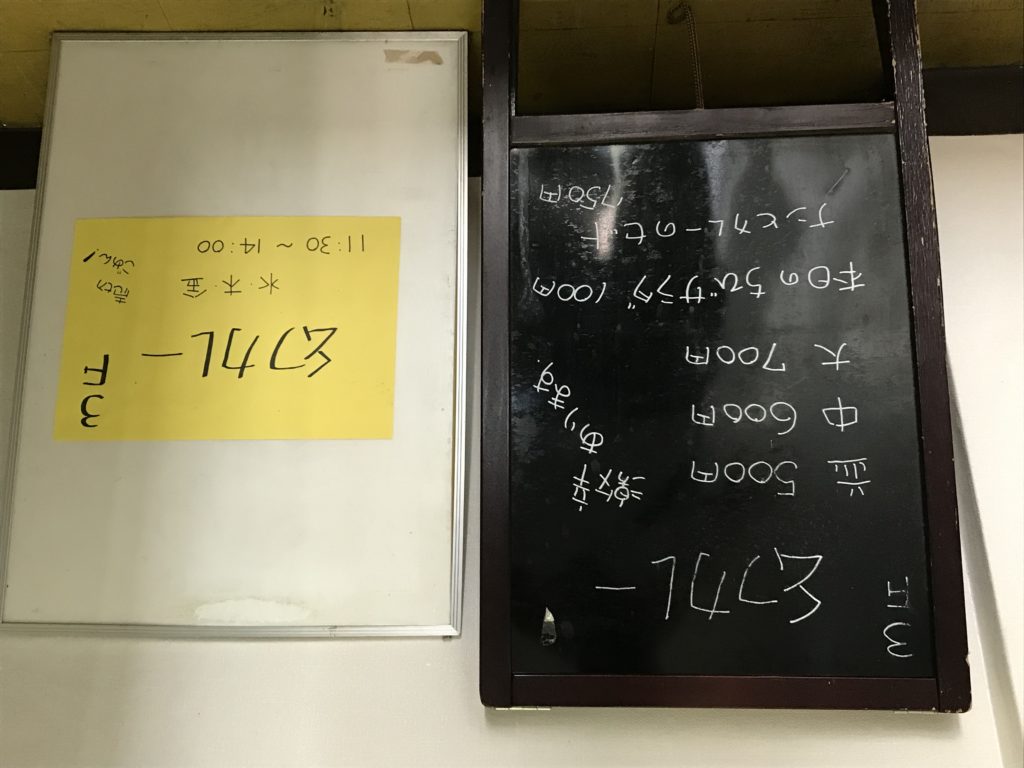 3F
幻カレー
並 500円
中 600円
大 700円
激辛
あります。
本日のちびサラダ 100円
ナンとカレーのセット
750円
3F
幻カレー
水・木・金
11:30~14:00
売切
ごめん!